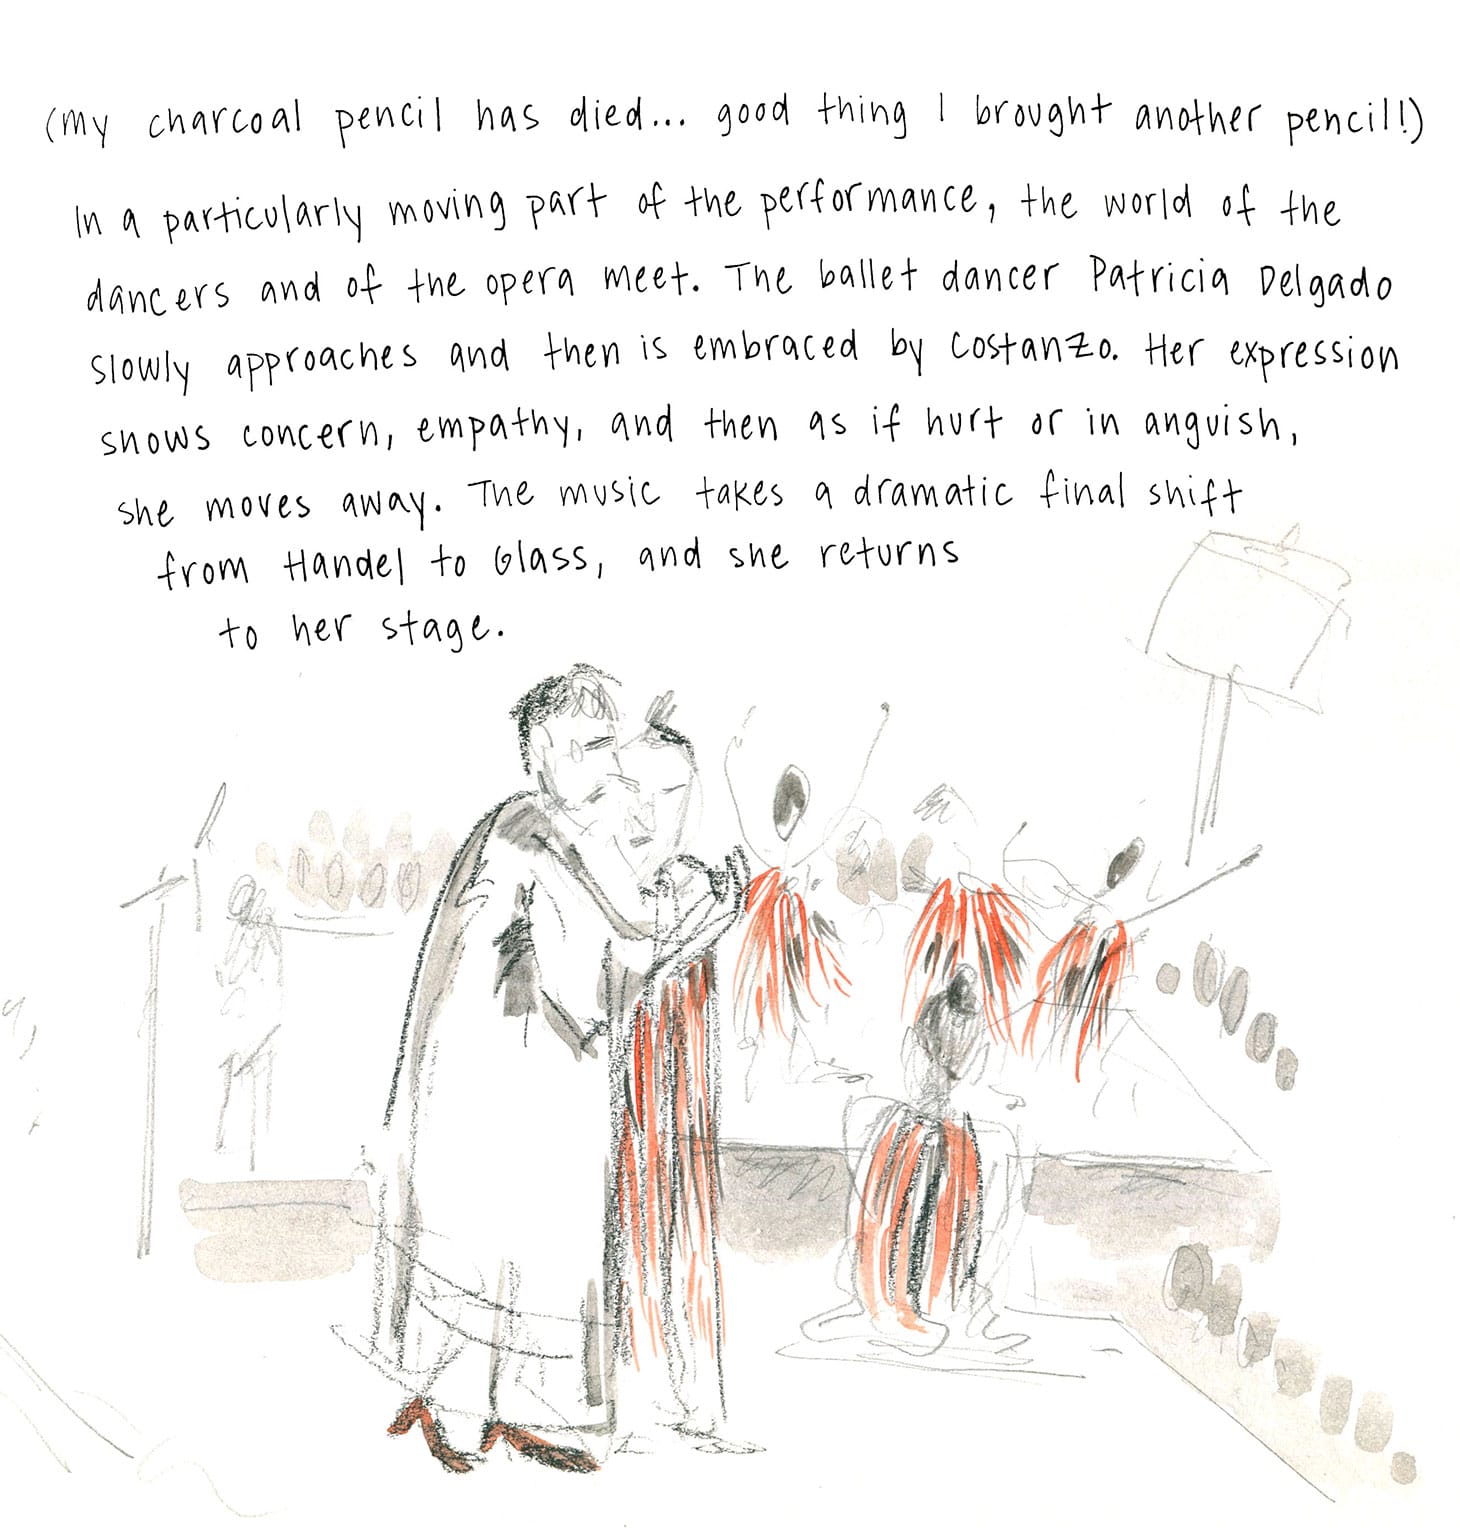 (my charcoal pencil has died... good thing I brought another pencil!)
In a particularly moving part of the performance, the world of the
dancers and of the opera meet. The ballet dancer Patricia Delgado
slowly approaches and then is embraced by Costanzo. Her expression
shows concern, empathy, and then as if hurt or in anguish,
she moves away. The music takes a dramatic final shift
from Handel to Glass, and she returns
to her stage.